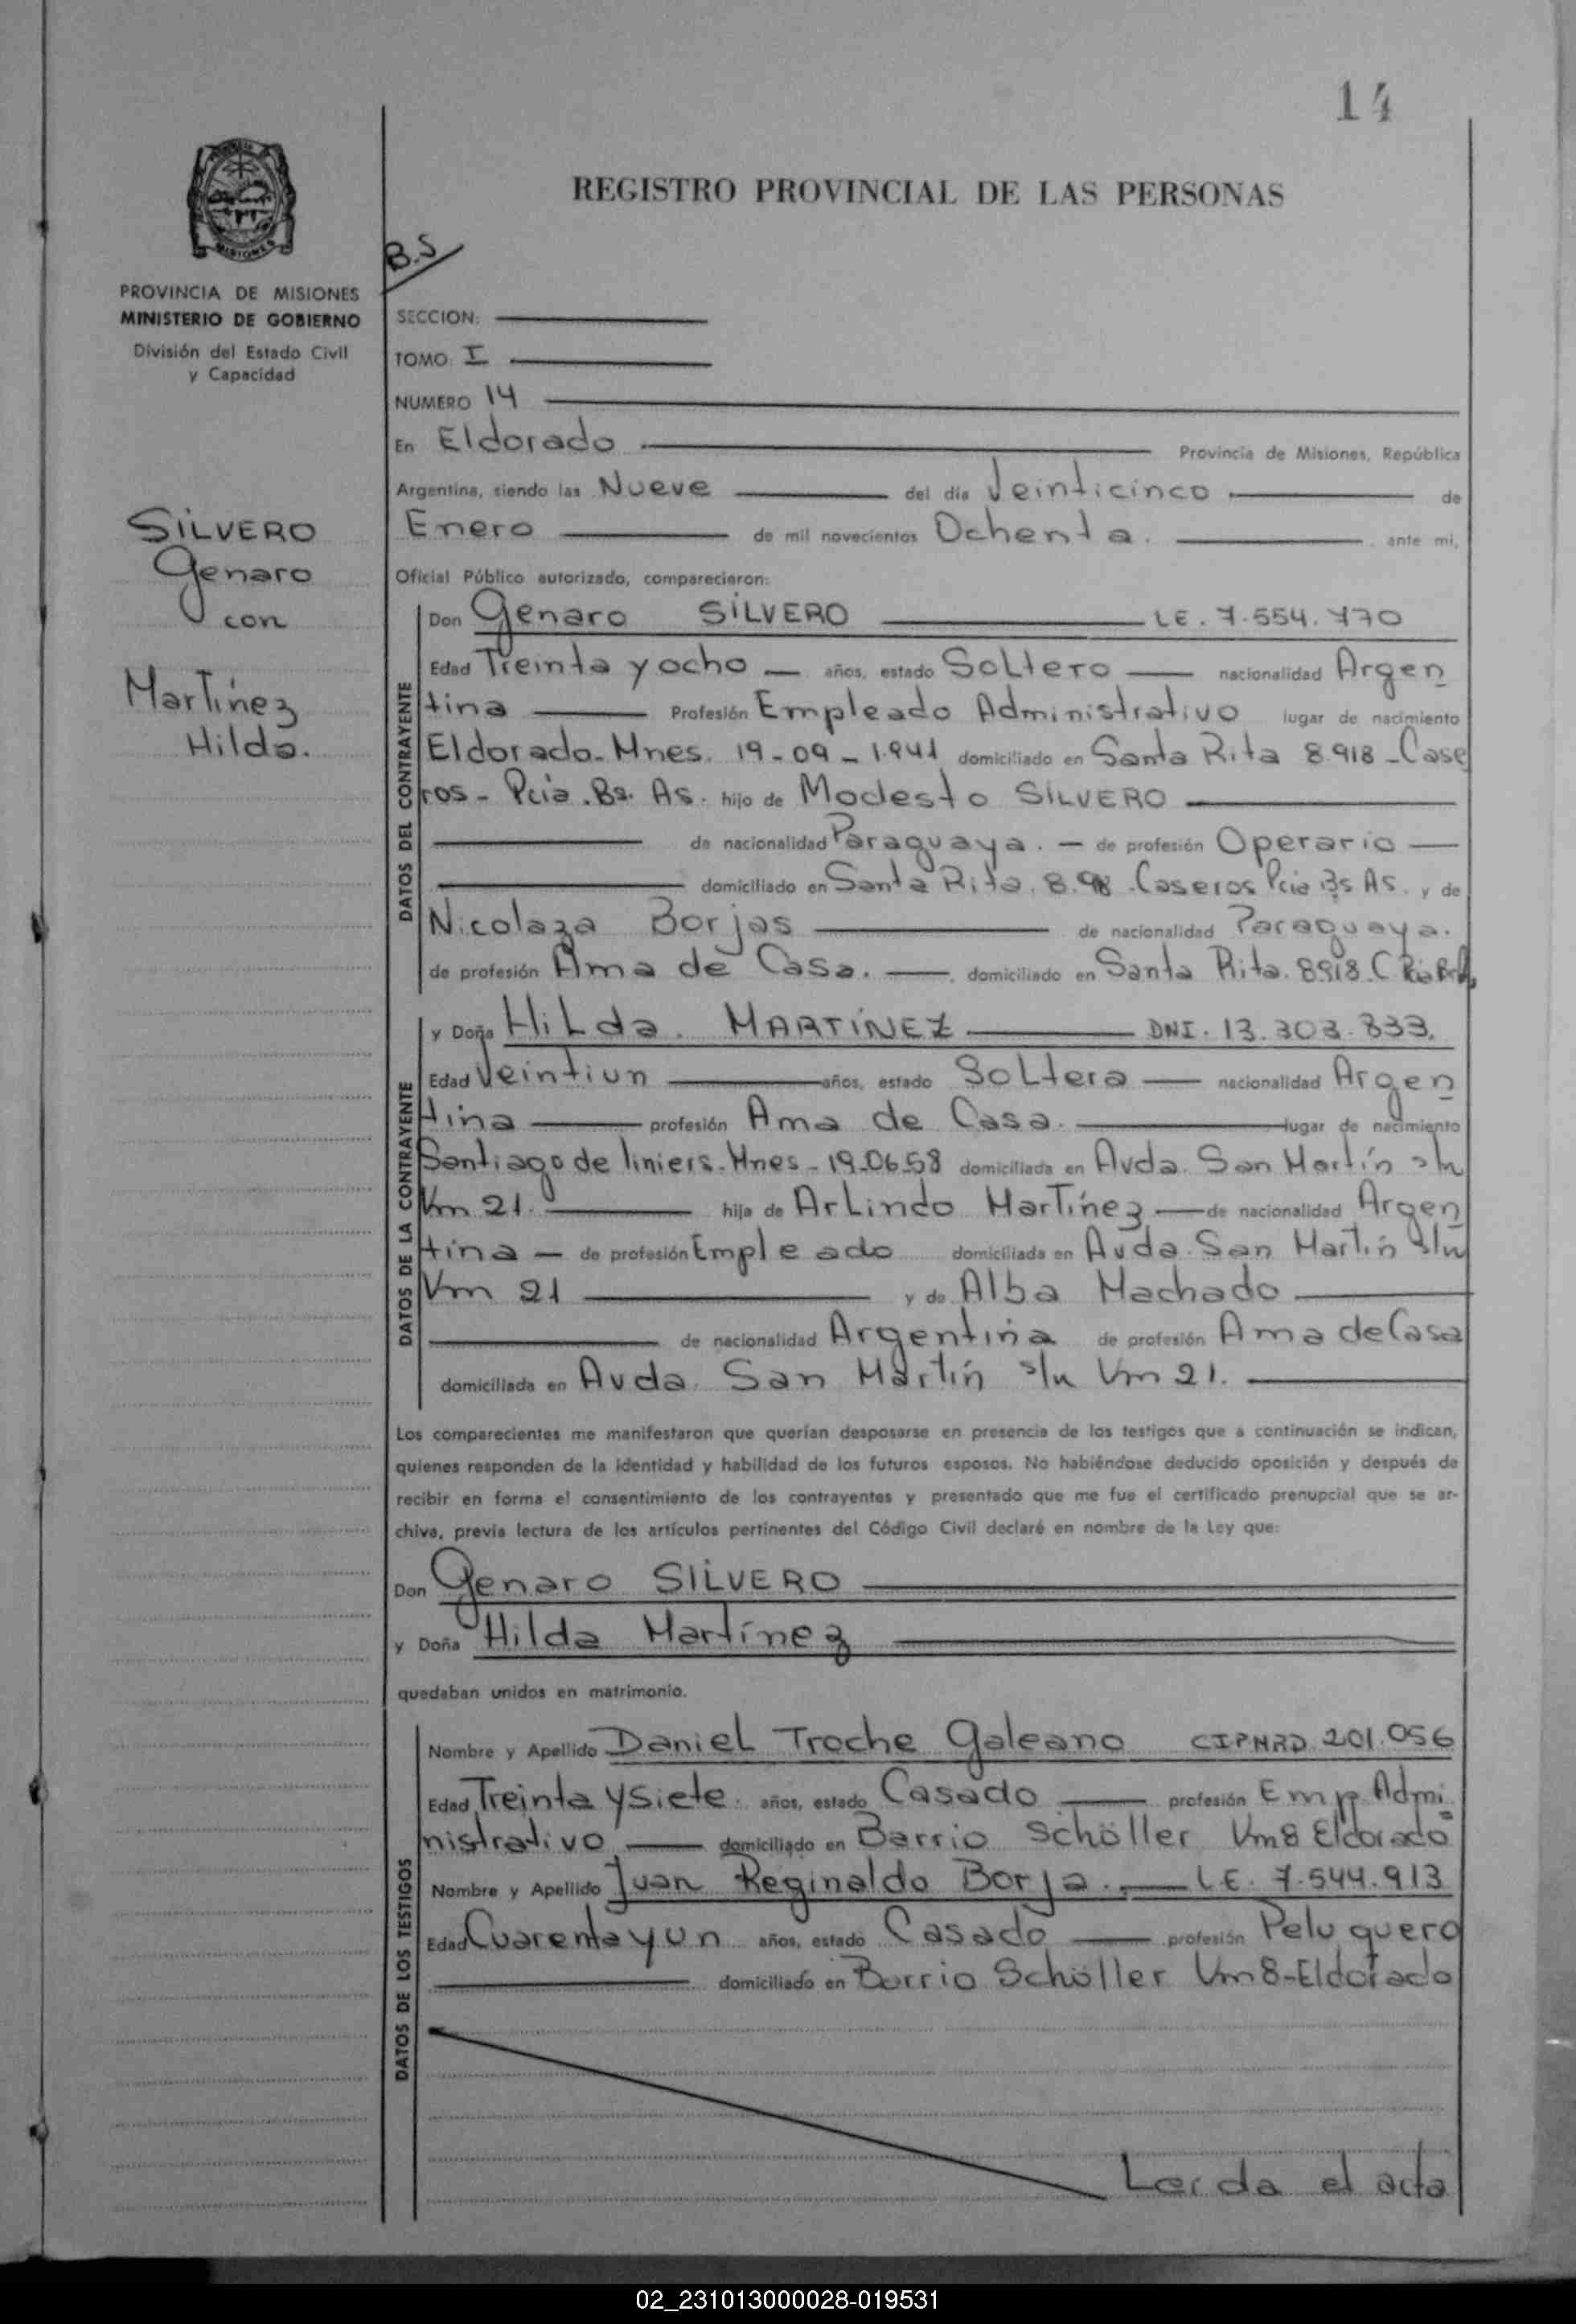 14
REGISTRO PROVINCIAL DE LAS PERSONAS
MISIONES
B.S
PROVINCIA DE MISIONES
MINISTERIO DE GOBIERNO
División del Estado Civil
y Capacidad
SILVERO
Genaro
con
Martínez
Hilda.
SECCION:
TOMO I
NUMERO 14
En Eldorado Provincia de Misiones, República
Argentina, siendo las Nueve del día Veinticinco de
Enero de mil novecientos Ochenta. ante mi,
Oficial Público autorizado, comparecieron:
DATOS DEL CONTRAYENTE
Don Genaro SILVERO LE. 7.554.770
Edad Treinta y ocho — años, estado Soltero — nacionalidad Argen
tina — Profesión Empleado Administrativo lugar de nacimiento
Eldorado- Mnes. 19-09-1.941 domiciliado en Santa Rita 8.918 - Case
ros - Pcia. Bs. As. hijo de Modesto SILVERO
de nacionalidad Paraguaya. — de profesión Operario —
domiciliado en Santa Rita. 8.918 - Caseros Pcia Bs As. y de
Nicolaza Borjas de nacionalidad Paraguaya.
de profesión Ama de Casa. —. domiciliado en Santa Rita. 8918. C
DATOS DE LA CONTRAYENTE
y Doña Hilda. MARTÍNEZ DNI. 13.303.833.
Edad Veintiun años, estado Soltera — nacionalidad Argen
tina profesión Ama de Casa. lugar de nacimiento
Santiago de liniers. Mnes - 19-06-58 domiciliada en Avda. San Martín s/n
Km 21. hija de Arlindo Martínez — de nacionalidad Argen
tina — de profesión Empleado domiciliada en Avda. San Martín s/n
Km 21 y de Alba Machado
de nacionalidad Argentina de profesión Ama de Casa
domiciliada en Avda. San Martín s/n Km 21.
Los comparecientes me manifestaron que querían desposarse en presencia de los testigos que a continuación se indican,
quienes responden de la identidad y habilidad de los futuros esposos. No habiéndose deducido oposición y después de
recibir en forma el consentimiento de los contrayentes y presentado que me fue el certificado prenupcial que se ar-
chiva, previa lectura de los artículos pertinentes del Código Civil declaré en nombre de la Ley que:
Don Genaro SILVERO
y Doña Hilda Martínez
quedaban unidos en matrimonio.
DATOS DE LOS TESTIGOS
Nombre y Apellido Daniel Troche Galeano CIPMRD 201.056
Edad Treinta y siete. años, estado Casado — profesión Emp Admi
nistrativo — domiciliado en Barrio Schöller Km 8 Eldorado
Nombre y Apellido Juan Reginaldo Borja. — LE. 7.544.913
Edad Cuarenta y un años, estado Casado — profesión Peluquero
domiciliado en Barrio Schöller Km 8-Eldorado
el acta
02_231013000028-019531